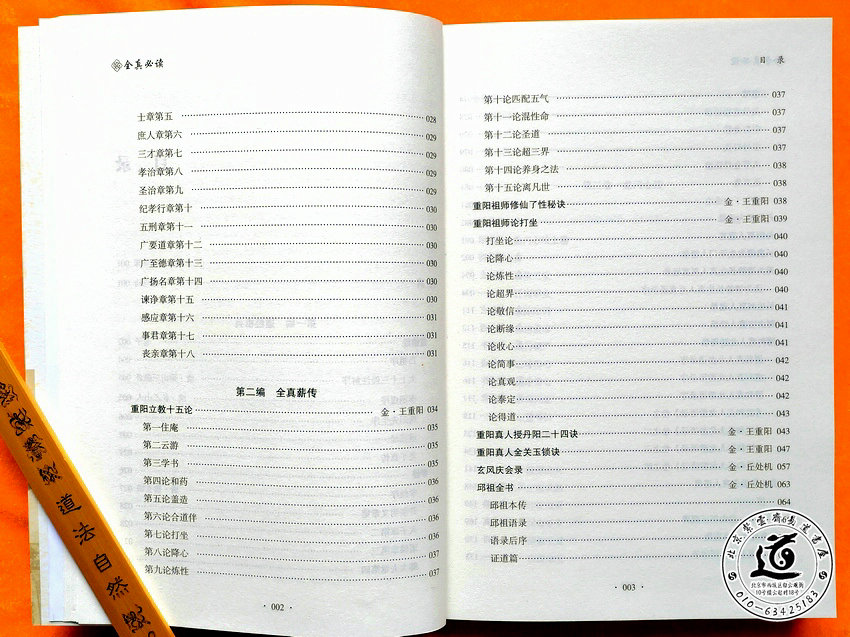 全真必读
士章第五 028
庶人章第六 029
三才章第七 029
孝治章第八 029
圣治章第九 029
纪孝行章第十 030
五刑章第十一 030
广要道章第十二 030
广至德章第十三 030
广扬名章第十四 030
谏诤章第十五 030
感应章第十六 031
事君章第十七 031
丧亲章第十八 031
第二编 全真薪传
重阳立教十五论 金·王重阳 034
第一住庵 035
第二云游 035
第三学书 035
第四论和药 036
第五论盖造 036
第六论合道伴 036
第七论打坐 036
第八论降心 037
第九论炼性 037
· 002 ·
目 录
第十论匹配五气 037
第十一论混性命 037
第十二论圣道 037
第十三论超三界 037
第十四论养身之法 038
第十五论离凡世 038
重阳祖师修仙了性秘诀 金·王重阳 038
重阳祖师论打坐 金·王重阳 039
打坐论 040
论降心 040
论炼性 040
论超界 040
论敬信 041
论断缘 041
论收心 041
论简事 042
论真观 042
论泰定 042
论得道 043
重阳真人授丹阳二十四诀 金·王重阳 043
重阳真人金关玉锁诀 金·王重阳 047
玄风庆会录 金·丘处机 057
邱祖全书 金·丘处机 063
邱祖本传 064
邱祖语录
语录后序
证道篇
· 003 ·
道法自然
道
010-63425183